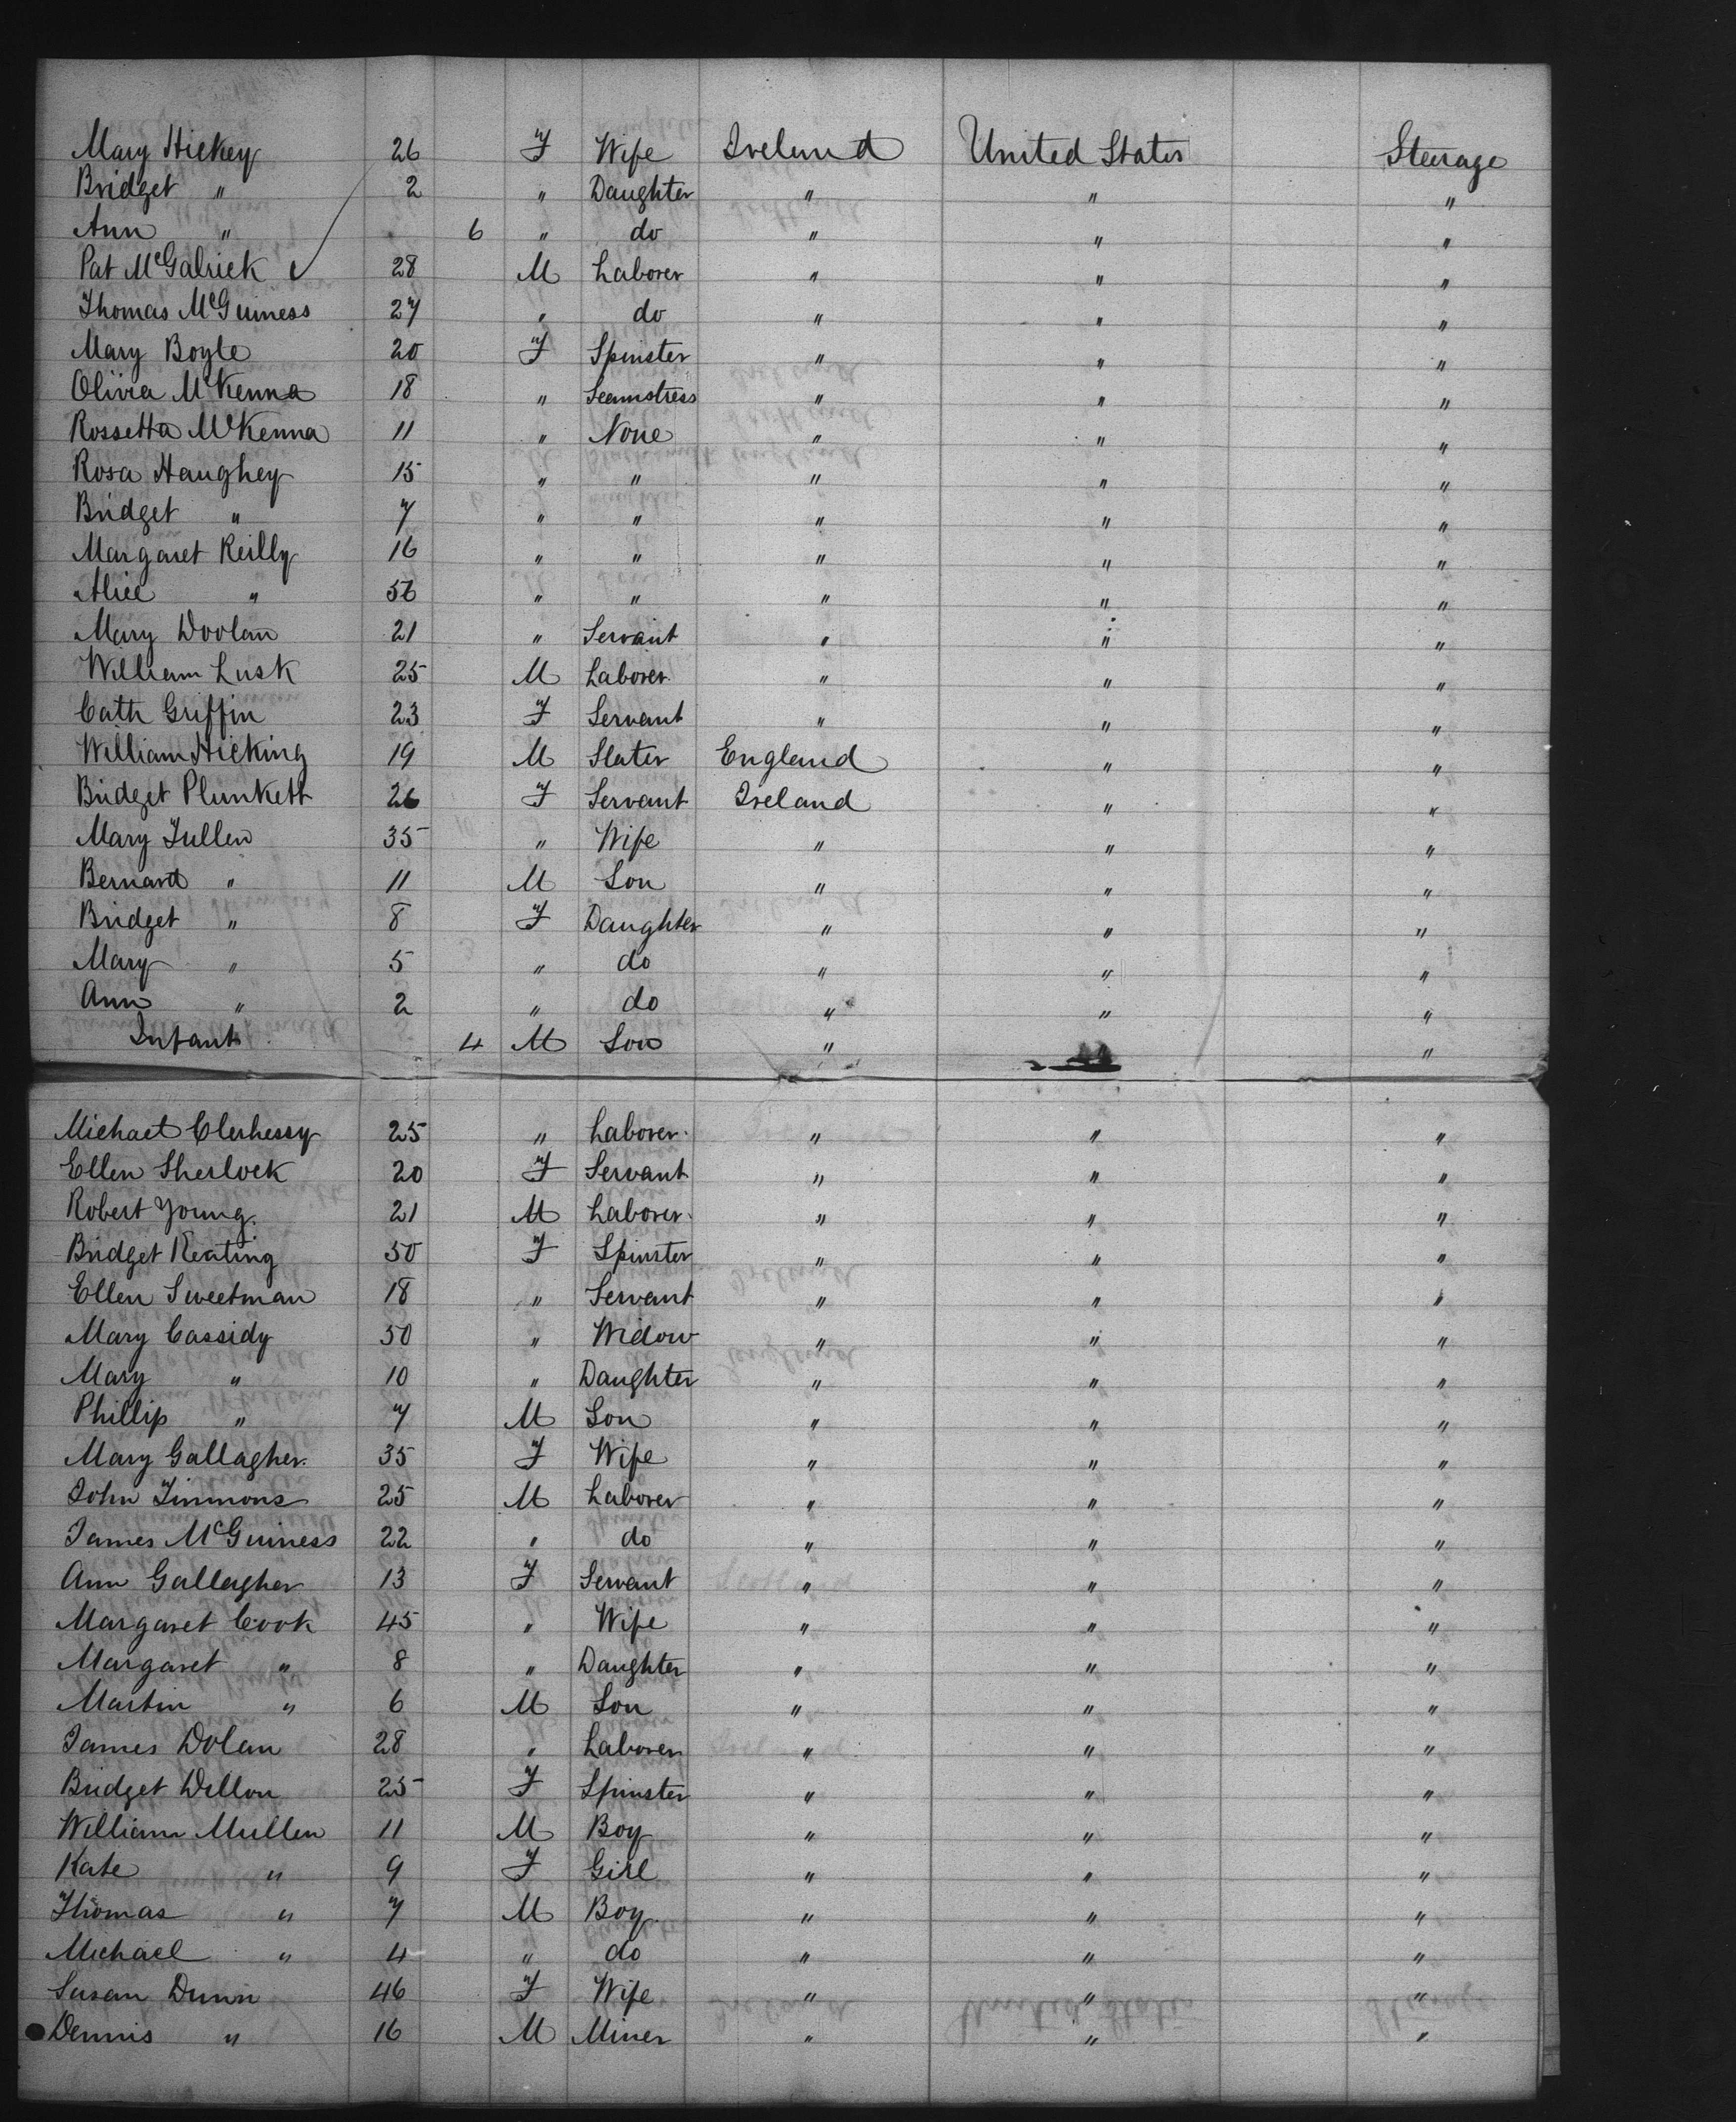 Mary Hickey 26 F Wife Ireland United States Steerage
Bridget " 2 " Daughter " " "
Ann " 6 " do " " "
Pat McGalrick 28 M Laborer " " "
Thomas McGuiness 27 " do " " "
Mary Boyle 20 F Spinster " " "
Olivia McKenna 18 " Seamstress " " "
Rossetta McKenna 11 " None " " "
Rosa Haughey 15 " " " " "
Bridget " 7 " " " " "
Margaret Reilly 16 " " " " "
Alice " 56 " " " " "
Mary Doolan 21 " Servant " " "
William Lusk 25 M Laborer " " "
Cath Griffin 23 F Servant " " "
William Hicking 19 M Slater England " "
Bridget Plunkett 26 F Servant Ireland " "
Mary Fullen 35 " Wife " " "
Bernard " 11 M Son " " "
Bridget " 8 F Daughter " " "
Mary " 5 " do " " "
Ann " 2 " do " " "
Infant 4 M Son " "
Michael Clerhessy 25 " Laborer " " "
Ellen Sherlock 20 F Servant " " "
Robert Young 21 M Laborer " " "
Bridget Keating 50 F Spinster " " "
Ellen Sweetman 18 " Servant " " "
Mary Cassidy 50 " Widow " " "
Mary " 10 " Daughter " " "
Phillip " 7 M Son " " "
Mary Gallagher 35 F Wife " " "
John Timmons 25 M Laborer " " "
James McGuiness 22 " do " " "
Ann Gallagher 13 F Servant " " "
Margaret Cook 45 " Wife " " "
Margaret " 8 " Daughter " " "
Martin " 6 M Son " " "
James Dolan 28 " Laborer " " "
Bridget Dillon 25 F Spinster " " "
William Mullen 11 M Boy " " "
Kate " 9 F Girl " " "
Thomas " 7 M Boy " " "
Michael " 4 " do " " "
Susan Dunn 46 F Wife " " "
Dennis " 16 M Miner " " "